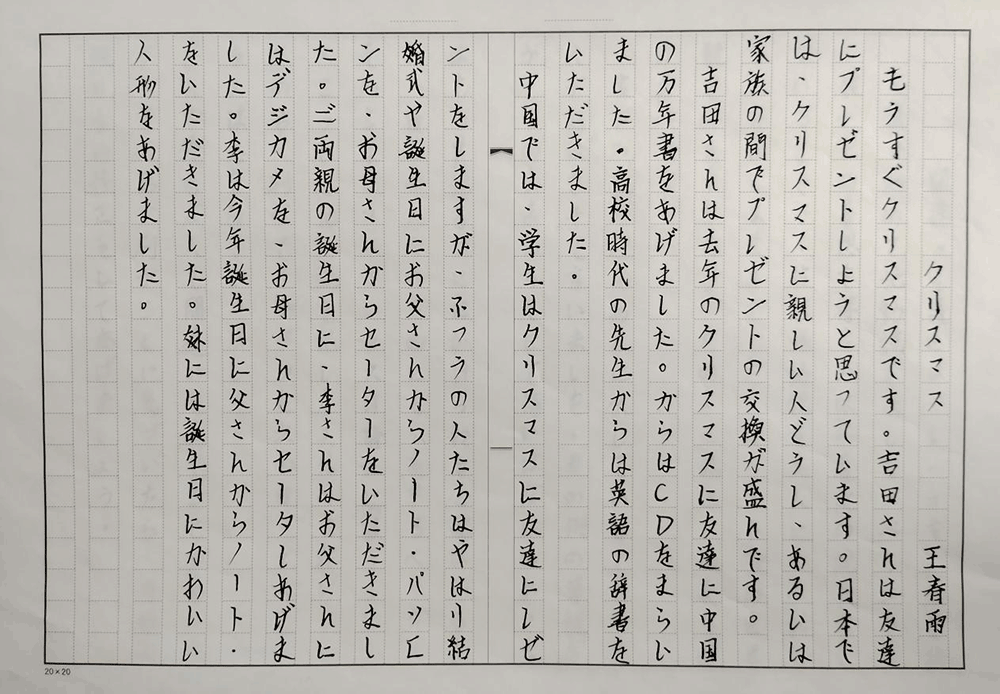 クリスマス　王春雨
もうすぐクリスマスです。吉田さんは友達
にプレゼントしようと思っています。日本で
は、クリスマスに親しい人どうし、あるいは
家族の間でプレゼントの交換が盛んです。
吉田さんは去年のクリスマスに友達に中国
の万年書をあげました。からはCDをまらい
ました。高校時代の先生からは英語の辞書を
いただきました。
中国では、学生はクリスマスに友達にレゼ
ントをしますが、ふつうの人たちはやはり結
婚式や誕生日にお父さんからノート・パソコ
ンを、お母さんからセーターをいただきまし
た。ご両親の誕生日に、李さんはお父さんに
はデジカメを、お母さんからセータしあげま
した。李は今年誕生日に父さんからノート・
をいただきました。妹には誕生日にかわいい
人形をあげました。
20×20